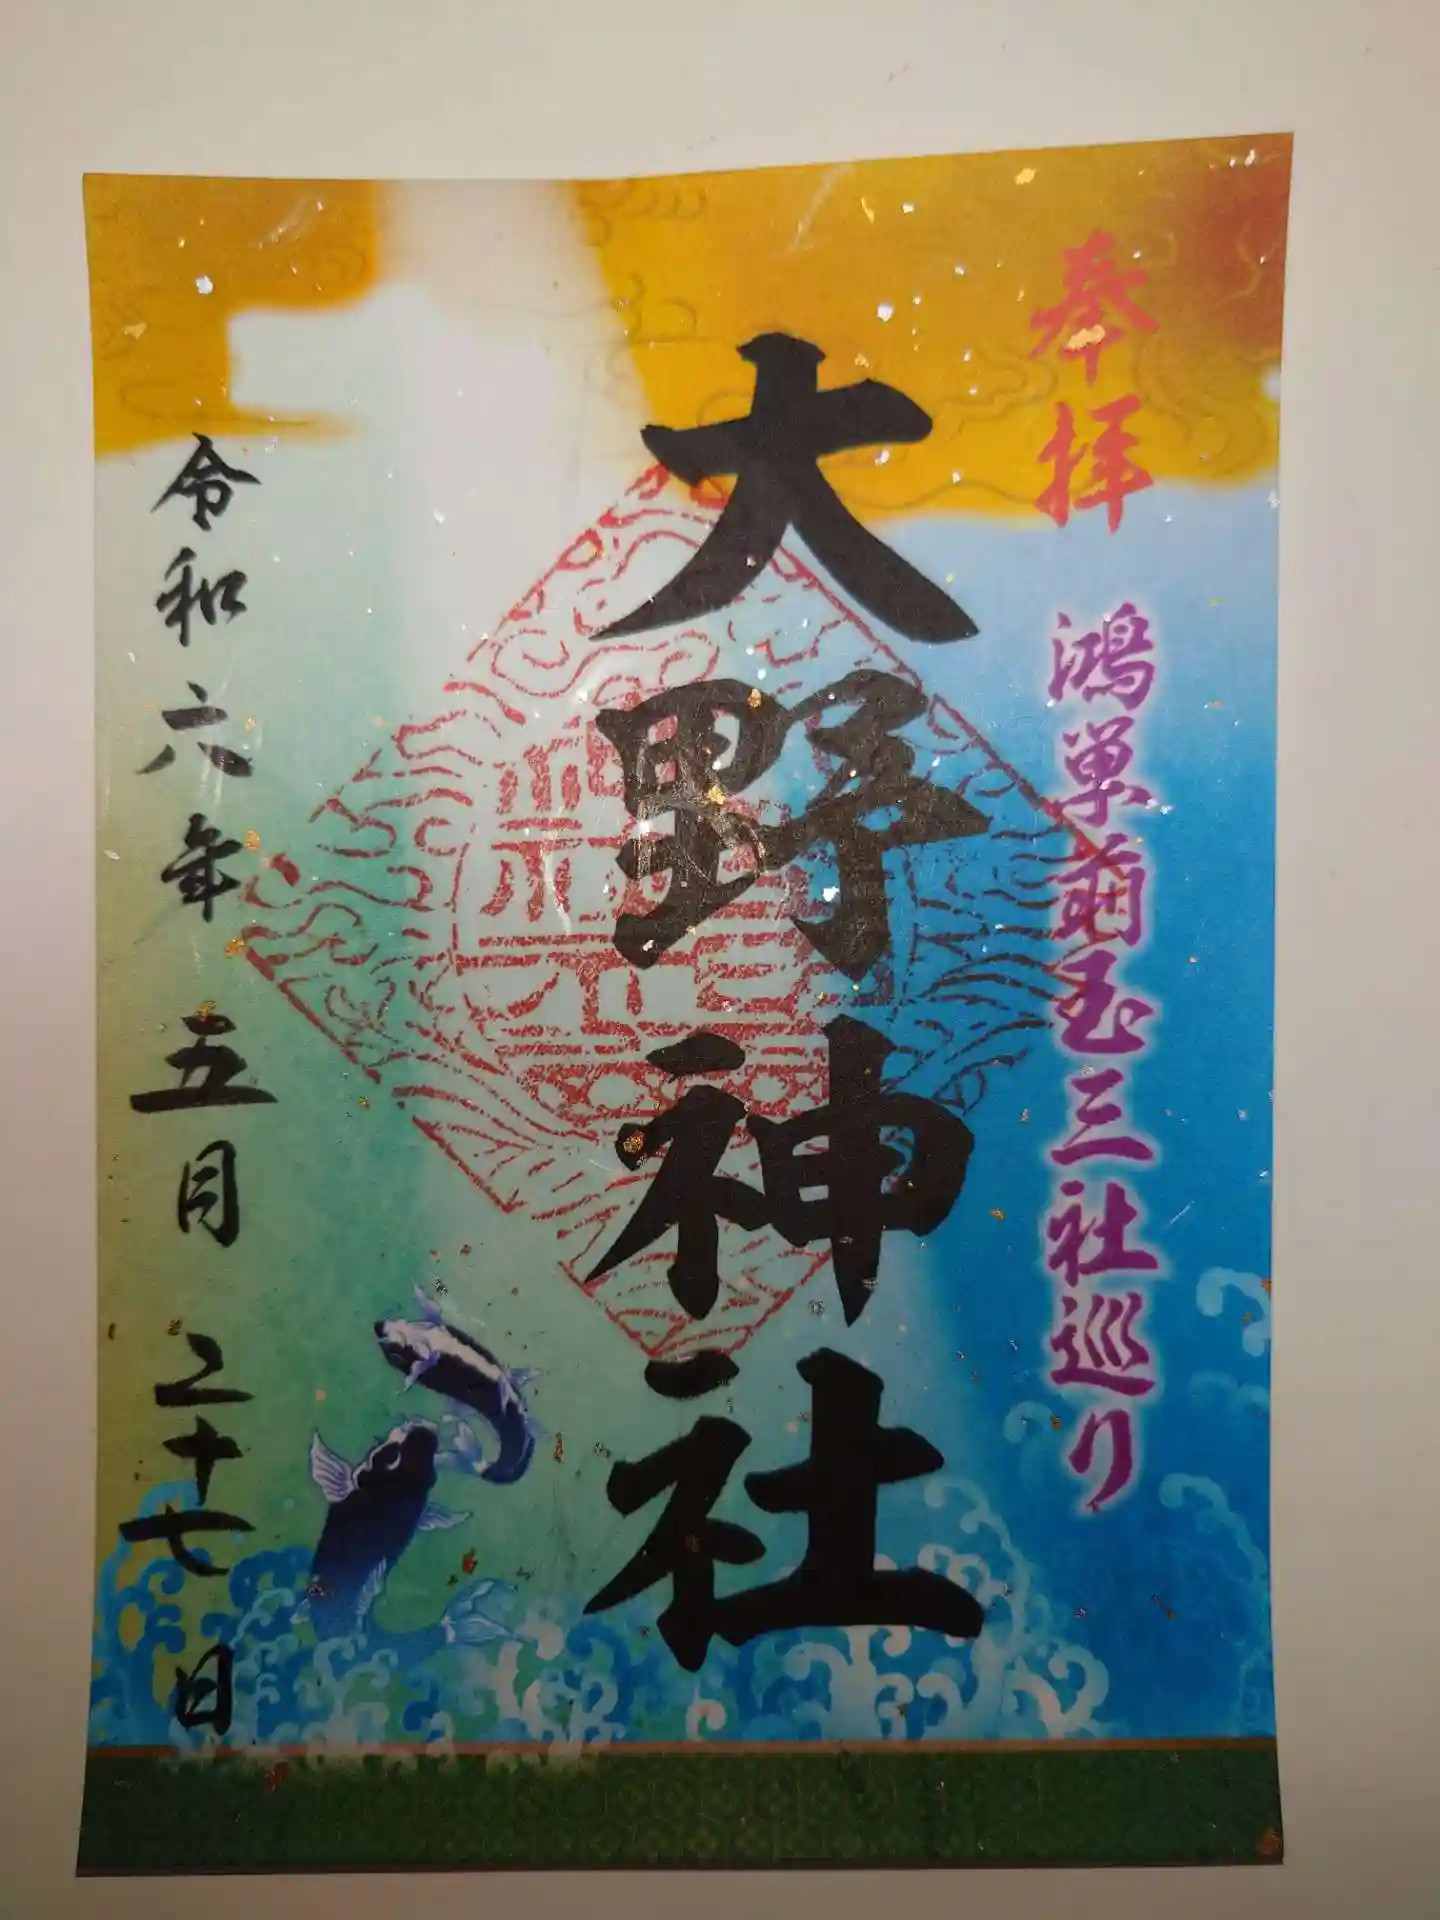 奉拝
鴻巣繭玉三社巡り
大野神社
令和六年 五月 二十七日